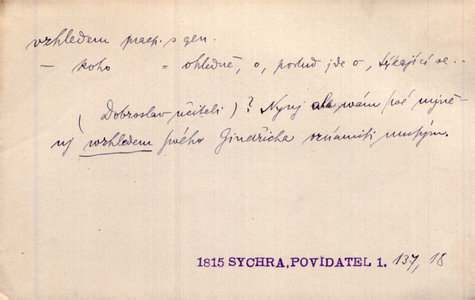 vzhledem praep. s gen.
— koho = ohledně, o, pokud jde o, týkající se..
(Dobroslav učiteli)? Nyní ale vám své mjně-
nj wzhledem swého Gindřicha oznámiti musým.
1815 SYCHRA, POVÍDATEL 1. 137, 18